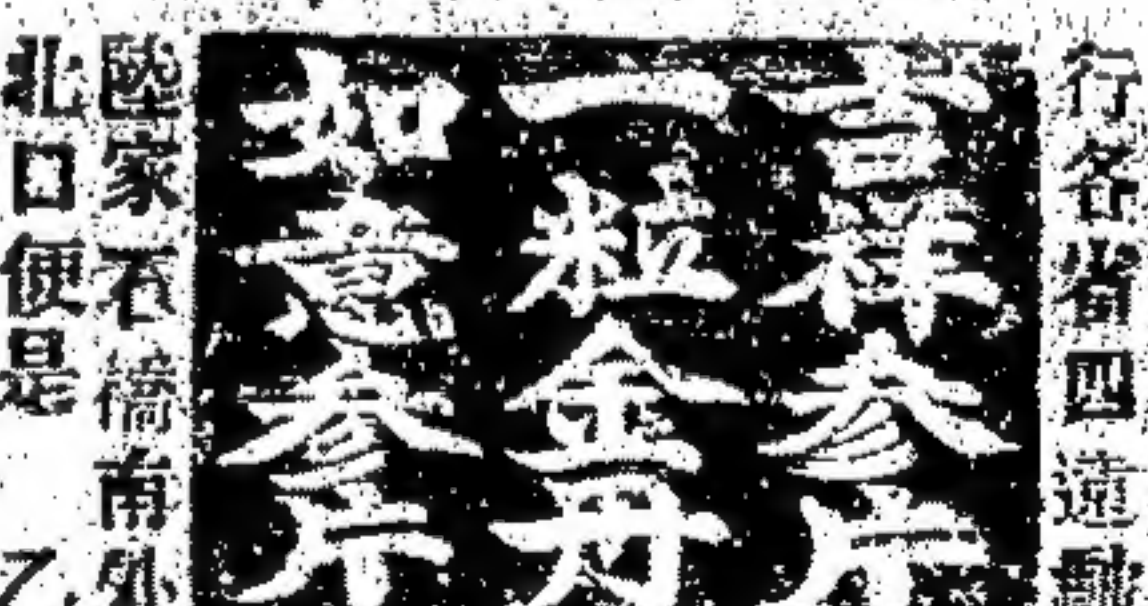 行各省四遠
吉祥參片
一粒金丹
如意參片
陸家石橋南
北口便是